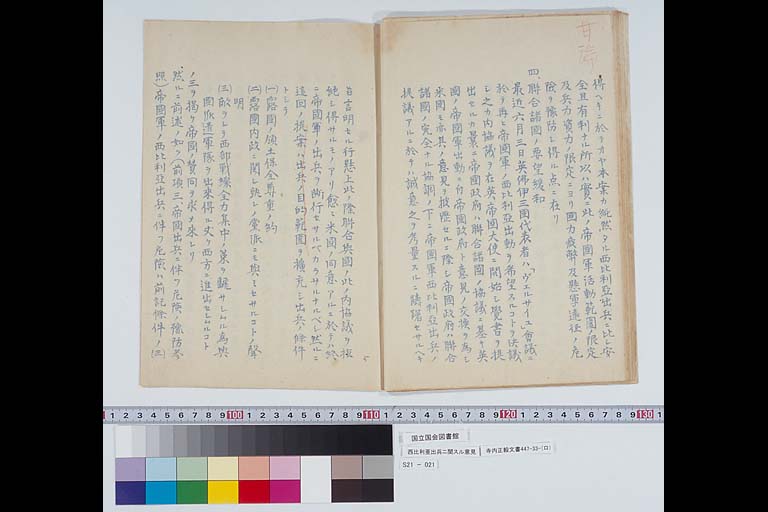 得ヘキニ於テオヤ本案カ純然タル西比利亜出兵ニ比シ安
全且有利ナル所以ハ実ニ此ノ帝国軍活動範囲ノ限定
及兵力資力ノ限定ニヨリ国力疲弊及懸軍遠征ノ危
険ヲ予防シ得ル点ニ在リ
四、聯合諸国ノ要望緩和
最近六月三日英佛伊三国代表者ハ「ヴェルサイユ」会議ニ
於テ再ヒ帝国軍ノ西比利亜出動ヲ希望スルコトヲ決議
シ之カ内協議ヲ在英帝国大使ニ開始シ覚書ヲ提
出セルカ曩ニ帝国政府ハ聯合諸国ノ協議ニ基キ英
国ノ帝国軍出動ニ付帝国政府ト意見ノ交換ヲ為シ
米国モ亦其ノ意見ヲ披瀝セルニ際シ帝国政府ハ聯合
諸国ノ完全ナル協調ノ下ニ帝国軍西比利亜出兵ノ
提議アルニ於テハ誠意之ヲ考量スルニ躊躇セサルヘキ
旨言明セル行懸上此ノ際聯合与国ノ此ノ内協議ヲ拒
絶シ得サルモノアリ
ニ帝国軍ノ出兵ヲ断行セサルベカラサルナルベシ然ルニ
這回ノ提案ハ出兵ノ目的範囲ヲ拡充シ出兵ノ条件
トシテ
(一)露国ノ領土保全尊重ノ約
(二)露国内政ニ関シ孰レノ党派ニモ与ミセサルコトノ声
明
(三)敵ヲシテ西部戦線全力集中ノ策ヲ
国派遣軍隊ヲ出来得ル丈ケ西方ニ進出セシムルコト
ノ三ヲ掲ケ帝国賛同ヲ求メ来レリ
然ルニ前述ノ如ク(前項三、帝国出兵ニ伴フ危険ノ予防参
照)帝国軍ノ西比利亜出兵ニ伴フ危険ハ前記条件ノ(三)
1 2 3 4 5 6 7 8 9 100 1 2 3 4 5 6 7 8 9 110 1 2 3 4 5 6 7 8 9 120 1 2 3 4 5 6 7 8 9 130 1
国立国会図書館
西比利亜出兵ニ関スル意見
寺内正毅文書441-33-(ロ)
S21 - 021